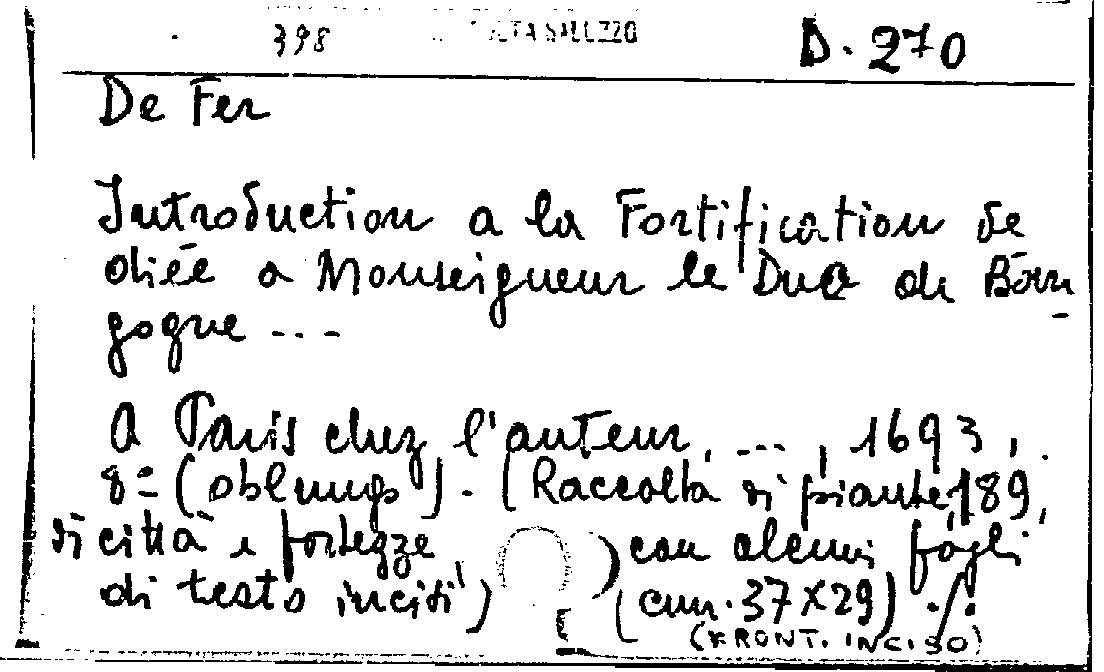 398 SALUZZO D. 270
De Fer
Introduction a la Fortification de
diée a Monseigneur le Duc de Bour
gogne ...
A Paris chez l'auteur, ..., 1693,
8º (oblungo). (Raccolta di piante, 189,
di città e fortezze con alcuni fogli
di testo incisi) (cm. 37X29) ./.
(FRONT. INCISO)